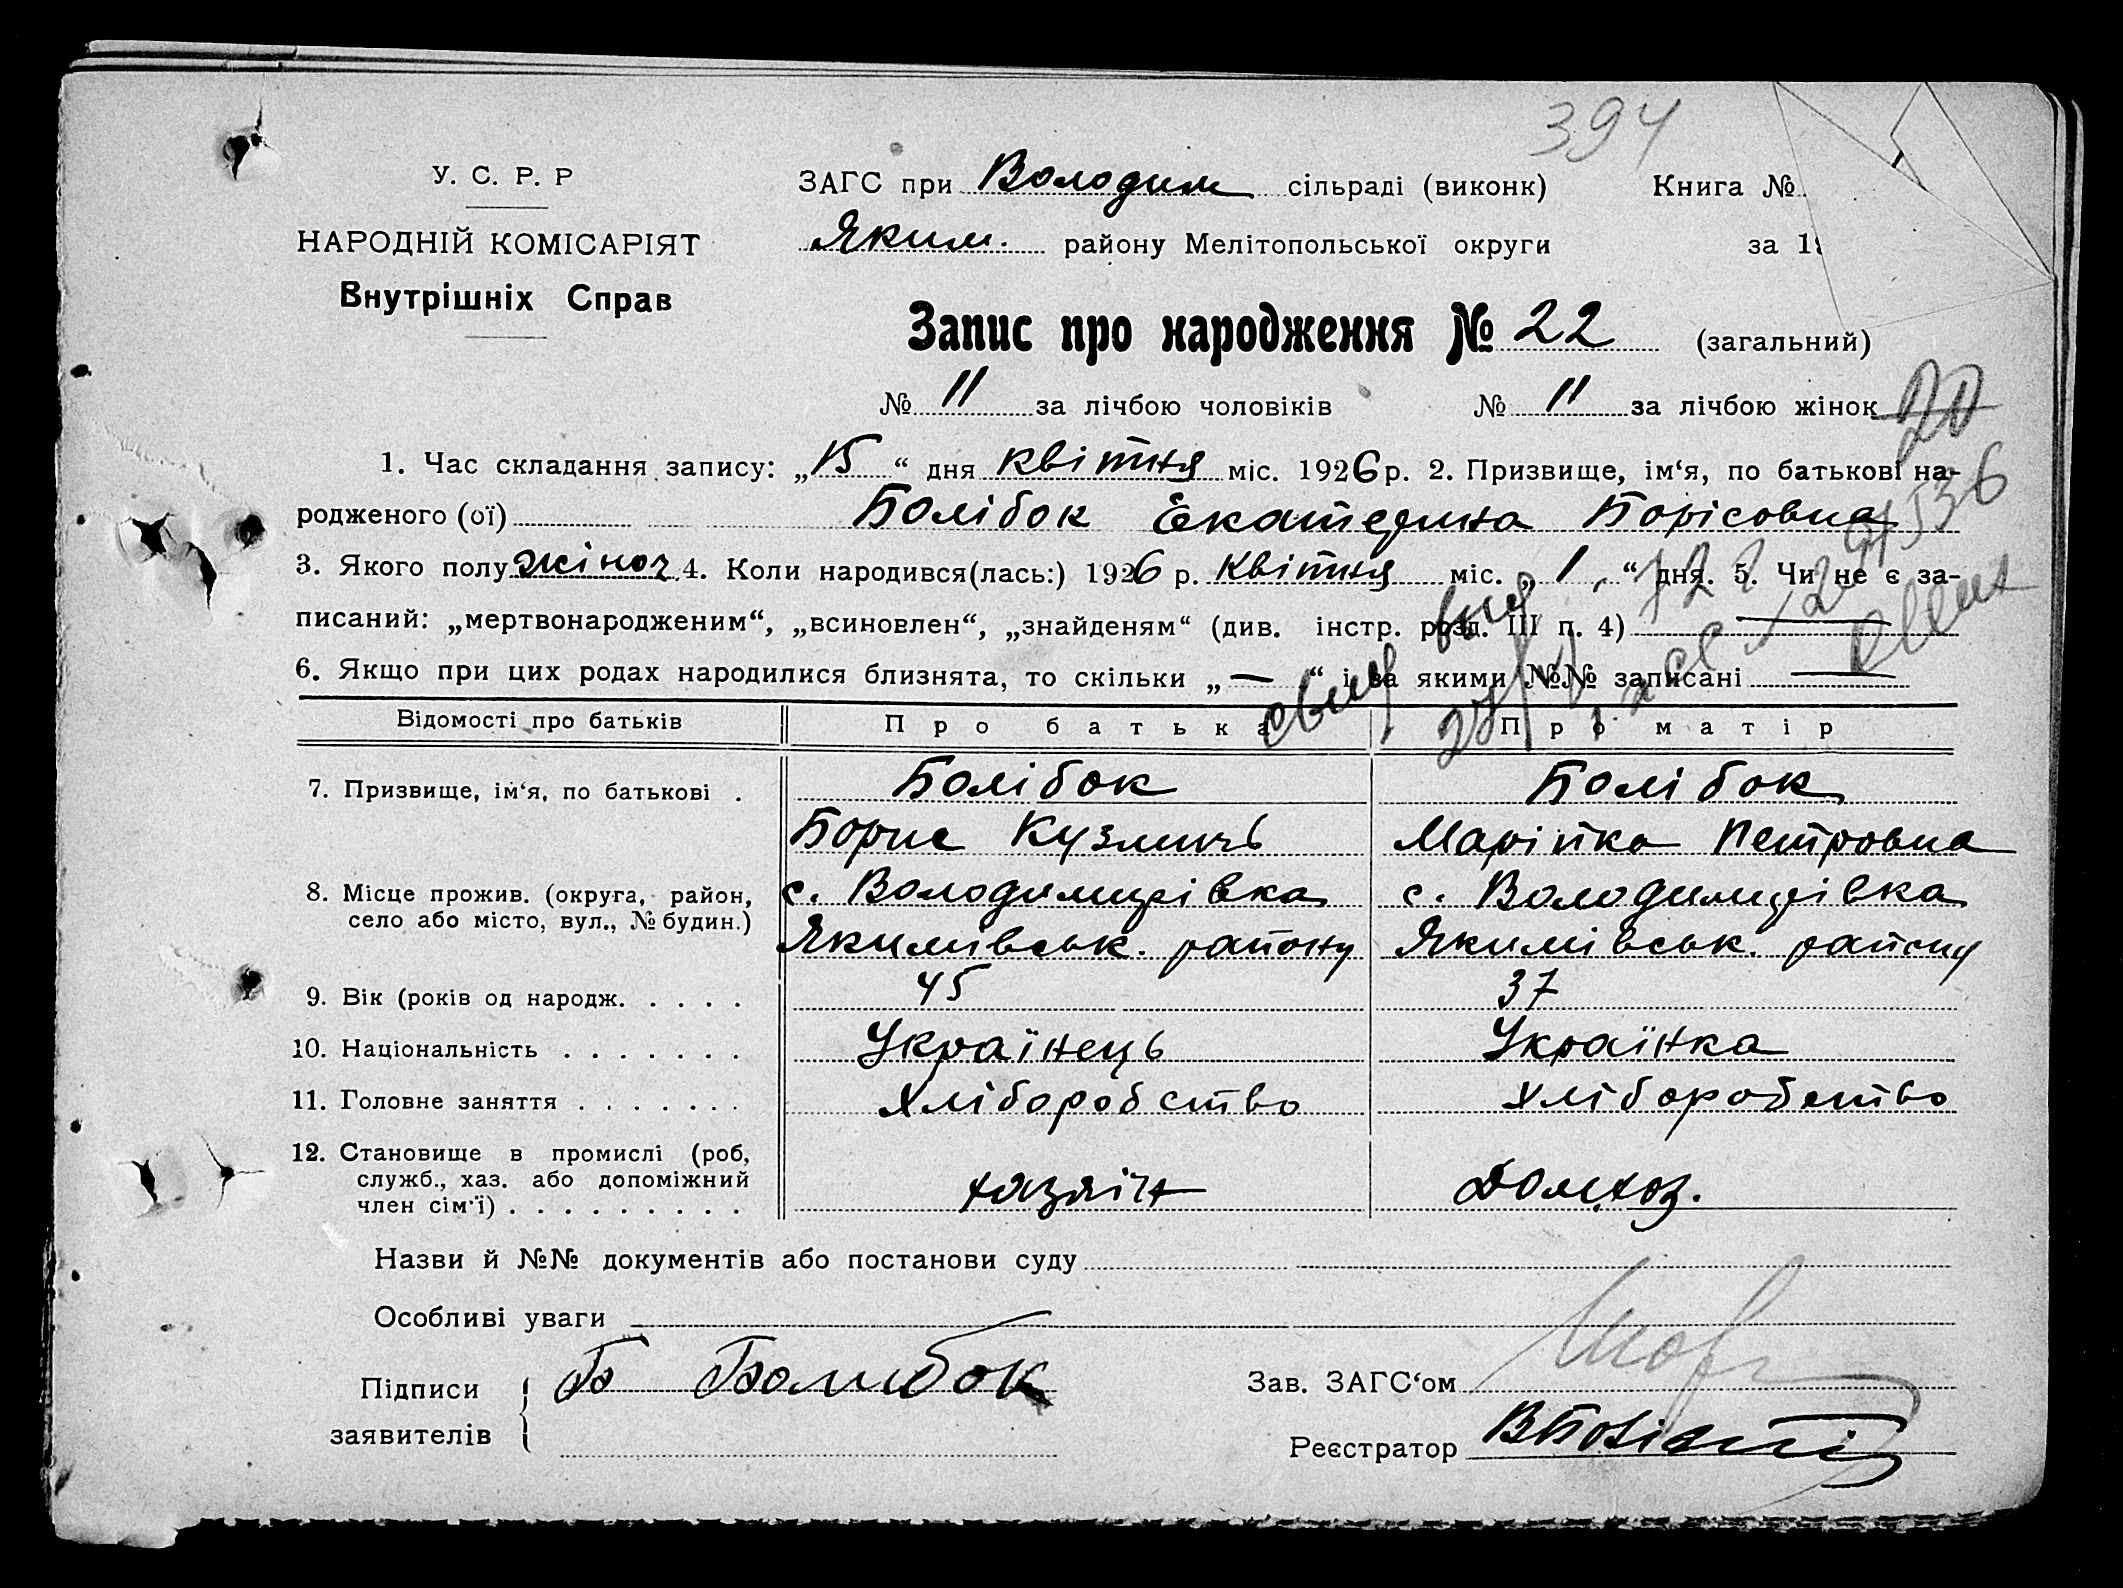 394
У. С. Р. Р
НАРОДНІЙ КОМІСАРІЯТ
Внутрішніх Справ
ЗАГС при Володим сільраді (виконк) Книга №
Яким. району Мелітопольської округи за 19
Запис про народження № 22 (загальний)
№ 11 за лічбою чоловіків № 11 за лічбою жінок 20
1. Час складання запису: „15“ дня квітня міс. 1926 р. 2. Призвище, ім‘я, по батькові на-
родженого (ої) Болібок Екатерина Борісовна
3. Якого полу жіноч 4. Коли народився(лась:) 1926 р. квітня міс. „1“ дня. 5. Чи не є за-
писаний: „мертвонародженим“, „всиновлен“, „знайденям“ (див. інстр. розд. III п. 4) —
6. Якщо при цих родах народилися близнята, то скільки „—“ і за якими №№ записані —
Відомості про батьків Про батька Про матір
7. Призвище, ім‘я, по батькові . Болібок Болібок
Борис Кузмичь Марійка Петровна
8. Місце прожив. (округа, район, с. Володимирівка с. Володимирівка
село або місто, вул., № будин.) Якимівськ. району Якимівськ. району
9. Вік (років од народж. . . . . 45 37
10. Національність . . . . . . . Українець Українка
11. Головне заняття . . . . . . . Хліборобство Хліборобство
12. Становище в промислі (роб,
служб., хаз. або допоміжний хазяін Домхоз.
член сім‘ї) . . . . . . . . .
Назви й №№ документів або постанови суду
Особливі уваги
Підписи Б Болибок Зав. ЗАГС‘ом
заявителів Реєстратор